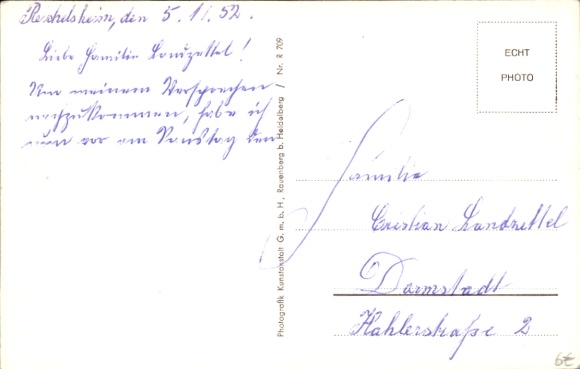 Reichelsheim, den 5. 11. 52.
Liebe Familie Landzettel!
Um meinem Versprechen
nachzukommen, habe ich
nun vor am Sonntag den
Photografik Kunstanstalt G. m. b. H., Rauenberg b. Heidelberg / Nr. R 709
ECHT
PHOTO
Familie
Cristian Landzettel
Darmstadt
Kahlerstraße 2
6€